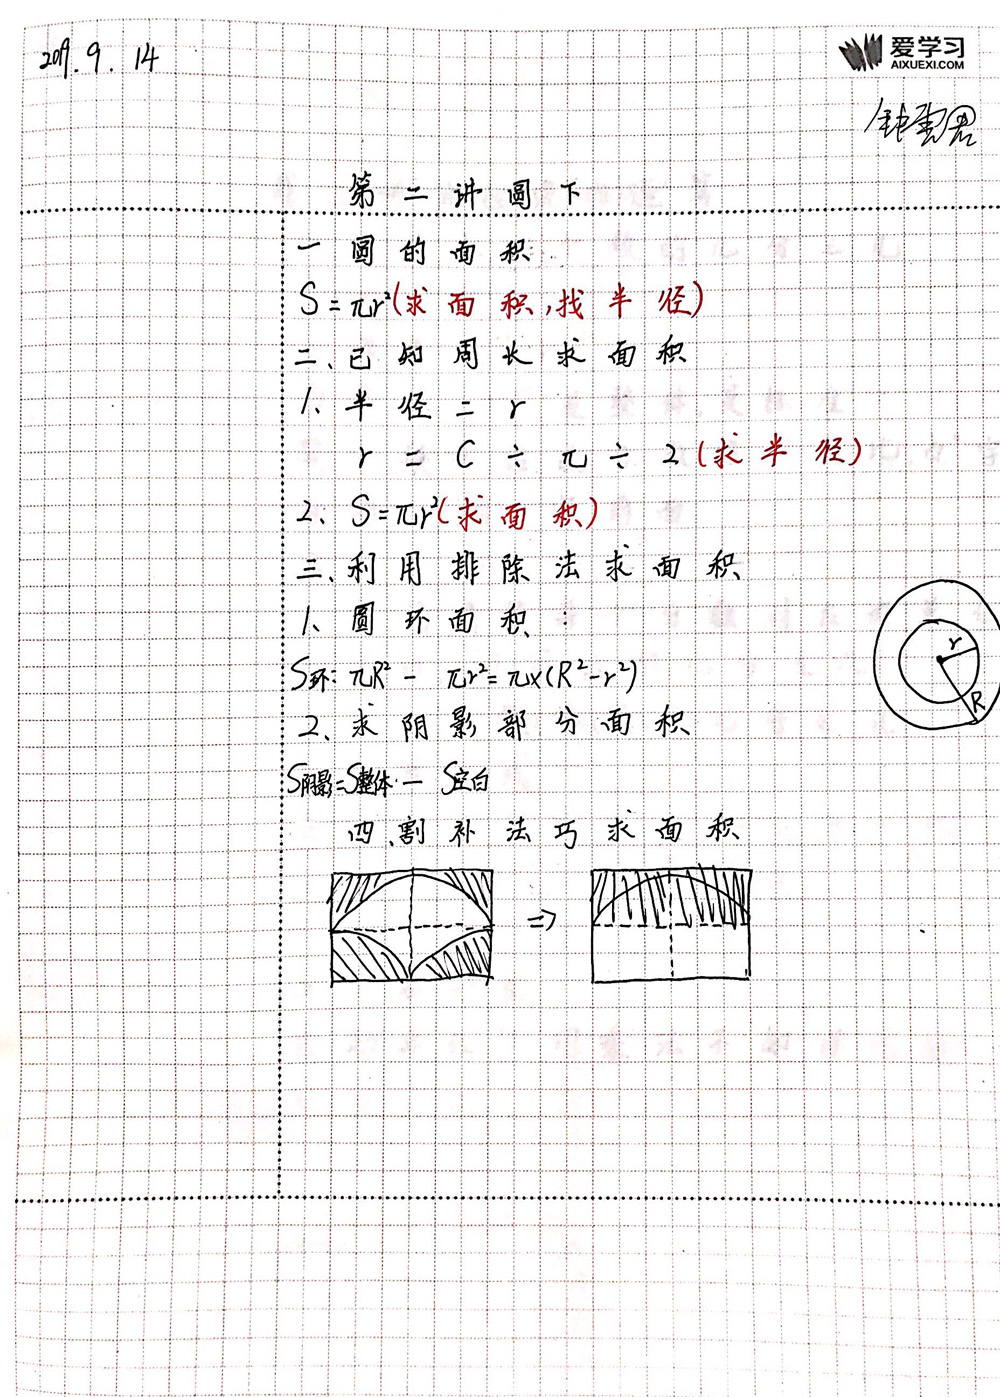 2019.9.14
爱学习
AIXUEXI.COM
第二讲圆下
一圆的面积:
S=πr²(求面积,找半径)
二、已知周长求面积
1、半径=r
r=C÷π÷2(求半径)
2、S=πr²(求面积)
三、利用排除法求面积
1、圆环面积:
S环:πR²-πr²=π×(R²-r²)
r
R
2、求阴影部分面积
S阴影=S整体-S空白
四、割补法巧求面积
⇒